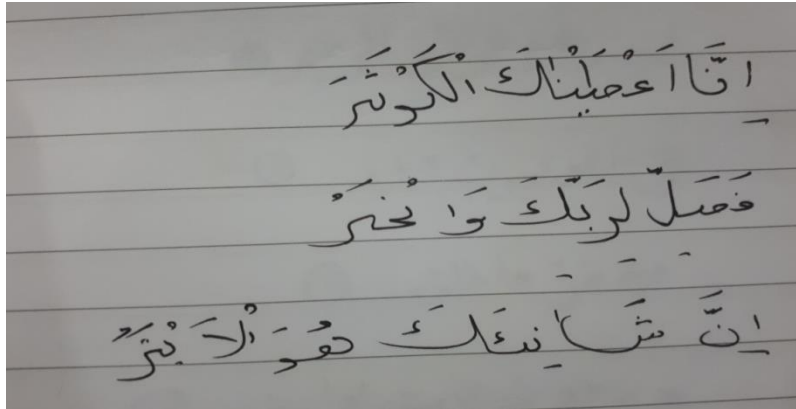 اِنَّا اَعْطَيْنٰكَ الْكَوْثَرَ
فَصَلِّ لِرَبِّكَ وَانْحَرْ
اِنَّ شَانِئَكَ هُوَ الْاَبْتَرُ